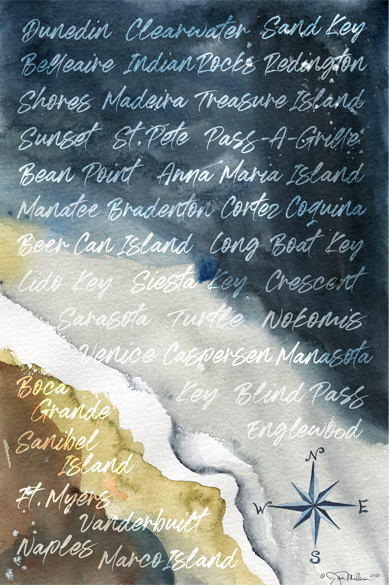 Dunedin Clearwater Sand Key
Belleaire Indian Rocks Redington
Shores Madeira Treasure Island
Sunset St. Pete Pass-A-Grille
Bean Point Anna Maria Island
Manatee Bradenton Cortez Coquina
Beer Can Island Long Boat Key
Lido Key Siesta Key Crescent
Sarasota Turtle Nokomis
Venice Caspersen Manasota
Key Blind Pass
Englewood
Boca
Grande
Sanibel
Island
Ft. Myers
Vanderbuilt
Naples Marco Island
N
W E
S
©